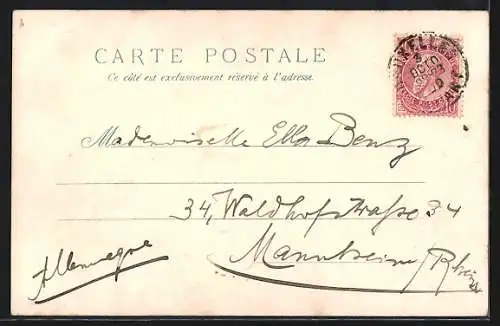 CARTE POSTALE
Ce côté est exclusivement réservé à l'adresse.
BRUXELLES
OCTO
Mademoiselle Ella Benz
34, Waldhofstraße 34
Mannheim / Rhein
Allemagne